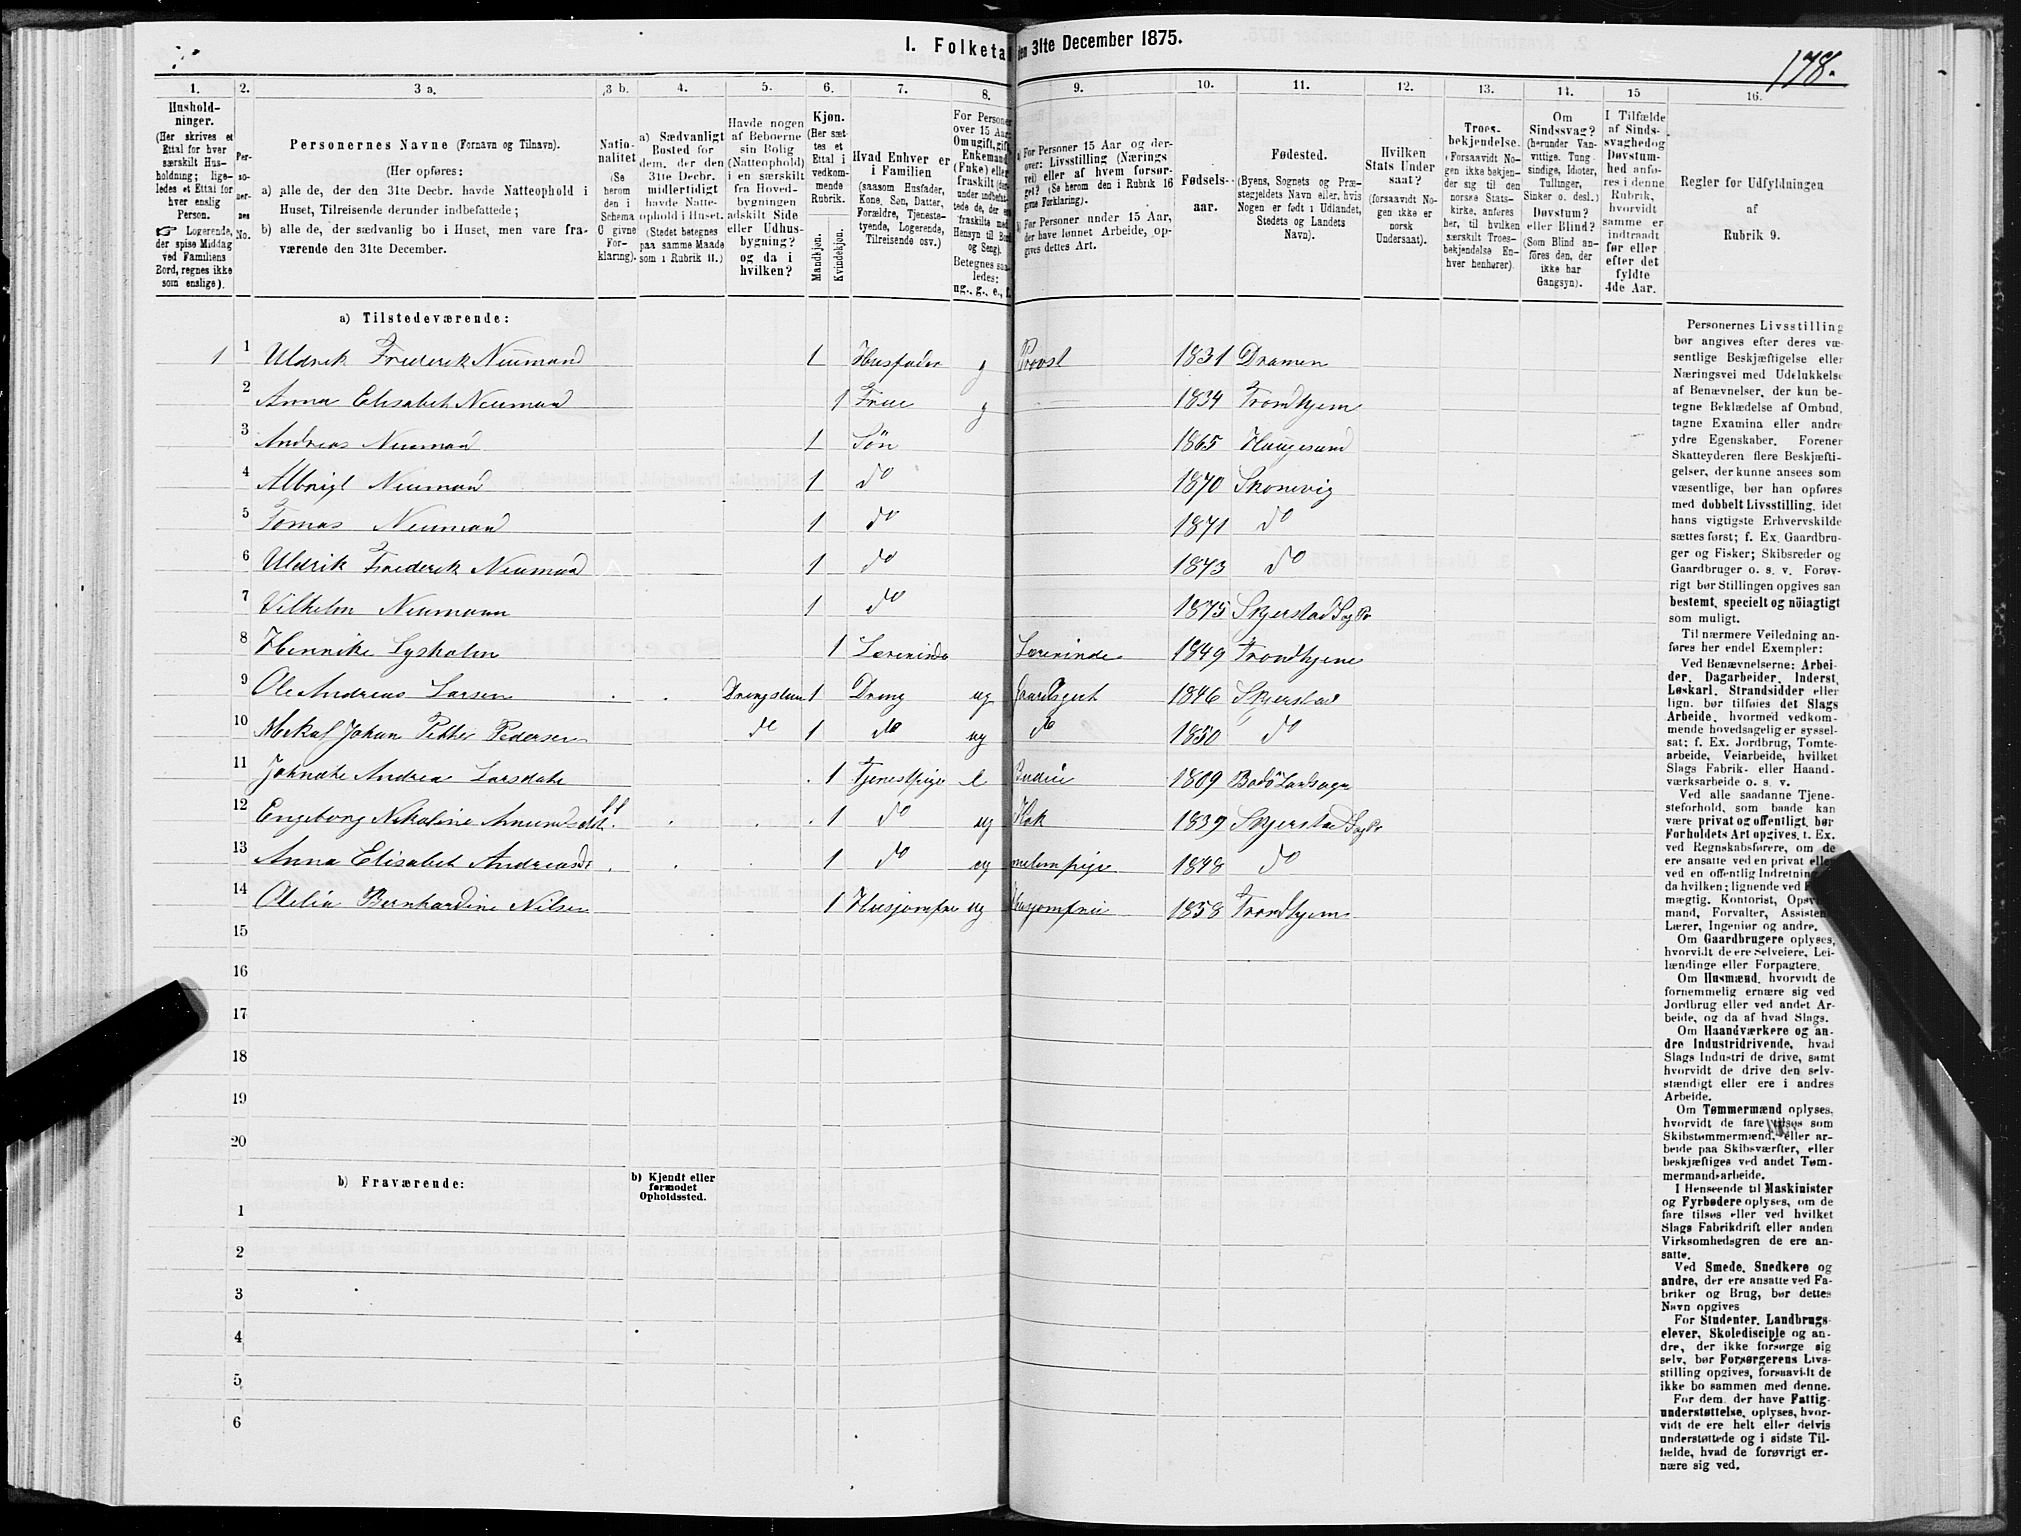 I. Folketa
den 31te December 1875.
178.
1.
2.
3 a.
3 b.
4.
5.
6.
7.
8.
9.
10.
11.
12.
13.
14.
15
16.
Hushold-
ninger.
(Her skrives et
Ettal for hver
særskilt Hus-
holdning; lige-
ledes et Ettal for
hver enslig
Person.
☞ Logerende,
der spise Middag
ved Familiens
Bord, regnes ikke
som enslige).
Per-
so-
ner-
nes
No.
Personernes Navne (Fornavn og Tilnavn).
(Her opføres:
a) alle de, der den 31te Decbr. havde Natteophold i
Huset, Tilreisende derunder indbefattede;
b) alle de, der sædvanlig bo i Huset, men vare fra-
værende den 31te December.
Natio-
nalitet
(Se
herom
den i
Schema
C givne
For-
klaring).
a) Sædvanligt
Bosted for
dem, der den
31te Decbr.
midlertidigt
havde Natte-
ophold i Huset.
(Stedet betegnes
paa samme Maade
som i Rubrik II.)
Havde nogen
af Beboerne
sin Bolig
(Natteophold)
i en særskilt
fra Hoved-
bygningen
adskilt Side
eller Udhus-
bygning?
og da i
hvilken?
Kjøn.
(Her sæt-
tes et
Ettal i
vedkom-
mende
Rubrik.
Mandkjøn.
Kvindekjøn.
Hvad Enhver er
i Familien
(saasom Husfader,
Kone, Søn, Datter,
Forældre, Tjeneste-
tyende, Logerende,
Tilreisende osv.)
For Personer
over 15 Aar:
Om ugift, gift,
Enkemand
(Enke) eller
fraskilt (her-
under indbefat-
tede de, der ere
fraskilte med
Hensyn til Bord
og Seng).
Betegnes saa-
ledes:
ug., g., e., f.
a) For Personer 15 Aar og der-
over: Livsstilling (Nærings
vei) eller af hvem forsør-
get? (Se herom den i Rubrik 16
givne Forklaring).
b) For Personer under 15 Aar,
der have lønnet Arbeide, op-
gives dettes Art.
Fødsels-
aar.
Fødested.
(Byens, Sognets og Præ-
stegjeldets Navn eller, hvis
Nogen er født i Udlandet,
Stedets og Landets
Navn).
Hvilken
Stats Under
saat?
(forsaavidt No-
gen ikke er
norsk
Undersaat).
Troes-
bekjendelse.
(Forsaavidt No-
gen ikke bekjen-
der sig til den
norske Stats-
kirke, anføres
her, til hvilken
særskilt Troes-
bekjendelse En-
hver henhører).
Om
Sindssvag?
(herunder Van-
vittige, Tung-
sindige, Idioter,
Tullinger,
Sinker o. desl.)
Døvstum?
eller Blind?
(Som Blind an-
føres den, der
ikke har
Gangsyn).
I Tilfælde
af Sinds-
svaghed og
Døvstum-
hed anfø-
res i denne
Rubrik,
hvorvidt
samme er
indtraadt
før eller
efter det
fyldte
4de Aar.
Regler for Udfyldningen
af
Rubrik 9.
a) Tilstedeværende:
1 1 Uldrik Frederik Neumand 1 Husfader g Provst 1831 Dramen
2 Anna Elisabet Neumand 1 Frue g 1834 Trondhjem
3 Andreas Neumand 1 Søn 1865 Haugesund
4 Albrigt Neumand 1 do 1870 Skonevig
5 Tomas Neumand 1 do 1871 do
6 Uldrik Frederik Neumand 1 do 1873 do
7 Vilhelm Neumann 1 do 1875 Skjerstad S og Pr
8 Henrike Lysholm 1 Lærerinde Lærerinde 1849 Trondhjem
9 Ole Andreas Larsen Drengstuen 1 Dreng ug Gaardsgut 1846 Skjerstad
10 Mikal Johan Petter Pedersen do 1 do ug do 1850 do
11 Johnate Andrea Larsdatr 1 Tjenestpige e Budeie 1809 Bodø Landsogn
12 Engeborg Nikoline Amunds 1 do ug Kok 1839 Skjerstad S og Pr
13 Anna Elisabet Andreasdr 1 do ug 1848 do
14 Olelia Bernhardine Nilsen 1 Husjomfru ug Husjomfru 1858 Trondhjem
15
16
17
18
19
20
b) Fraværende:
b) Kjendt eller
formodet
Opholdssted.
1
2
3
4
5
6
Personernes Livsstilling
bør angives efter deres væ-
sentlige Beskjæftigelse eller
Næringsvei med Udelukkelse
af Benævnelser, der kun be-
tegne Beklædelse af Ombud,
tagne Examina eller andre
ydre Egenskaber. Forener
Skatteyderen flere Beskjæfti-
gelser, der kunne ansees som
væsentlige, bør han opføres
med dobbelt Livsstilling, idet
hans vigtigste Erhvervskilde
sættes først; f. Ex. Gaardbru-
ger og Fisker; Skibsreder og
Gaardbruger o. s. v. Forøv-
rigt bør Stillingen opgives saa
bestemt, specielt og nöiagtigt
som muligt.
Til nærmere Veiledning an-
føres her endel Exempler:
Ved Benævnelserne: Arbei-
der, Dagarbeider, Inderst,
Løskarl, Strandsidder eller
lign. bør tilføies det Slags
Arbeide, hvormed vedkom-
mende hovedsagelig er syssel-
sat; f. Ex. Jordbrug, Tomte-
arbeide, Veiarbeide, hvilket
Slags Fabrik- eller Haand-
værksarbeide o. s. v.
Ved alle saadanne Tjene-
steforhold, som baade kan
være privat og offentligt, bør
Forholdets Art opgives, t. Ex.
ved Regnskabsførere, om de
ere ansatte ved en privat eller
ved en offentlig Indretning
da hvilken; lignende ved
mægtig, Kontorist, Opsyns-
mand, Forvalter, Assistent,
Lærer, Ingeniør og andre.
Om Gaardbrugere oplyses,
hvorvidt de ere Selveiere, Lei-
lændinge eller Forpagtere.
Om Husmænd, hvorvidt de
fornemmelig ernære sig ved
Jordbrug eller ved andet Ar-
beide, og da af hvad Slags.
Om Haandværkere og an-
dre Industridrivende, hvad
Slags Industri de drive, samt
hvorvidt de drive den selv-
stændigt eller ere i andres
Arbeide.
Om Tømmermænd oplyses,
hvorvidt de fare tilsøs som
Skibstømmermænd, eller ar-
beide paa Skibsværfter, eller
beskjæftiges ved andet Tøm-
mermandsarbeide.
I Henseende til Maskinister
og Fyrbødere oplyses, om de
fare tilsøs eller ved hvilket
Slags Fabrikdrift eller anden
Virksomhedsgren de ere an-
satte.
Ved Smede, Snedkere og
andre, der ere ansatte ved Fa-
briker og Brug, bør dettes
Navn opgives
For Studenter, Landbrugs-
elever, Skoledisciple og an-
dre, der ikke forsørge sig
selv, bør Forsørgerens Livs-
stilling opgives, forsaavidt de
ikke bo sammen med denne.
For dem, der have Fattig-
understøttelse, oplyses, hvor-
vidt de ere helt eller delvis
understøttede og i sidste Til-
fælde, hvad de forøvrigt er-
nære sig ved.